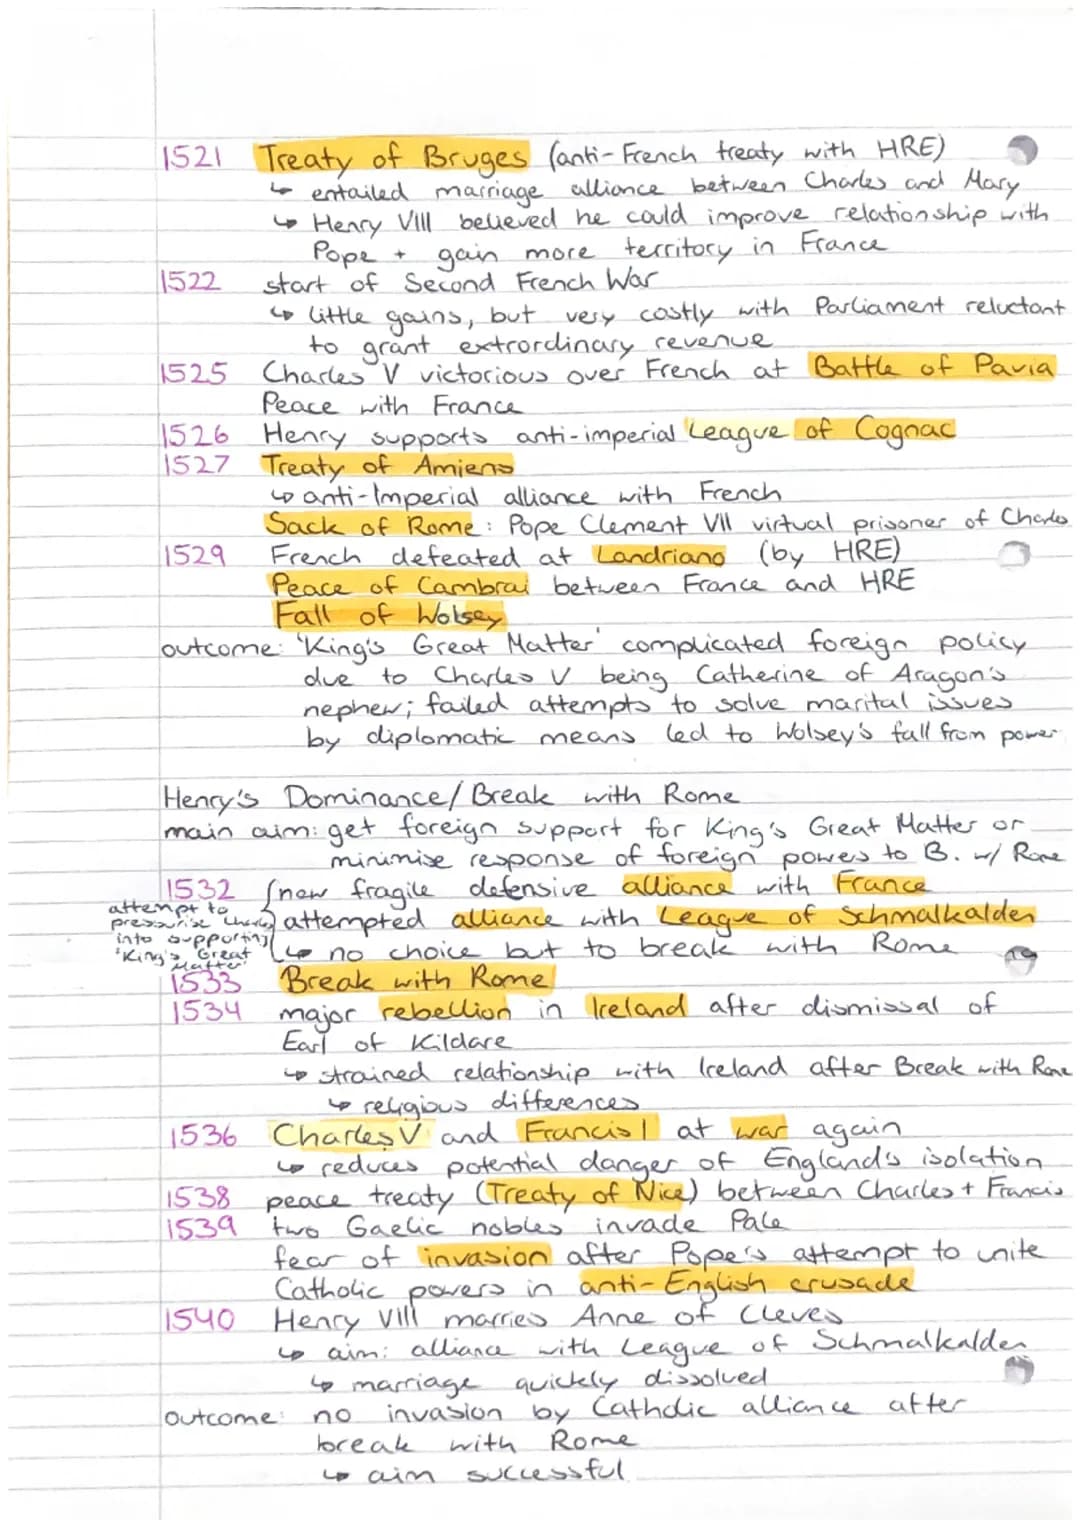 1521 Treaty of Bruges (anti-French treaty with HRE)
↳ entailed marriage alliance between Charles and Mary
↳ Henry VIII believed he could improve relationship with
Pope + gain more territory in France
1522 start of Second French War
↳ little gains, but very costly with Parliament reluctant
to grant extrordinary revenue
1525 Charles V victorious over French at Battle of Pavia
Peace with France
1526 Henry supports anti-imperial League of Cognac
1527 Treaty of Amiens
↳ anti-Imperial alliance with French
Sack of Rome: Pope Clement VII virtual prisoner of Charles
1529 French defeated at Landriano (by HRE)
Peace of Cambrai between France and HRE
Fall of Wolsey
outcome: 'King's Great Matter' complicated foreign policy
due to Charles V being Catherine of Aragon's
nephew; failed attempts to solve marital issues
by diplomatic means led to Wolsey's fall from power
Henry's Dominance/Break with Rome
main aim: get foreign support for King's Great Matter or
minimise response of foreign powers to B. w/ Rome
1532 new fragile defensive alliance with France
attempted alliance with League of Schmalkalden
↳ no choice but to break with Rome
attempt to
pressurise Charles
into supporting
'King's Great
Matter'
1533 Break with Rome
1534 major rebellion in Ireland after dismissal of
Earl of Kildare
↳ strained relationship with Ireland after Break with Rome
↳ religious differences
1536 Charles V and Francis I at war again
↳ reduces potential danger of England's isolation
1538 peace treaty (Treaty of Nice) between Charles + Francis
1539 two Gaelic nobles invade Pale
fear of invasion after Pope's attempt to unite
Catholic powers in anti-English crusade
1540 Henry VIII marries Anne of Cleves
↳ aim: alliance with League of Schmalkalden
↳ marriage quickly dissolved
outcome: no invasion by Catholic alliance after
break with Rome
↳ aim successful